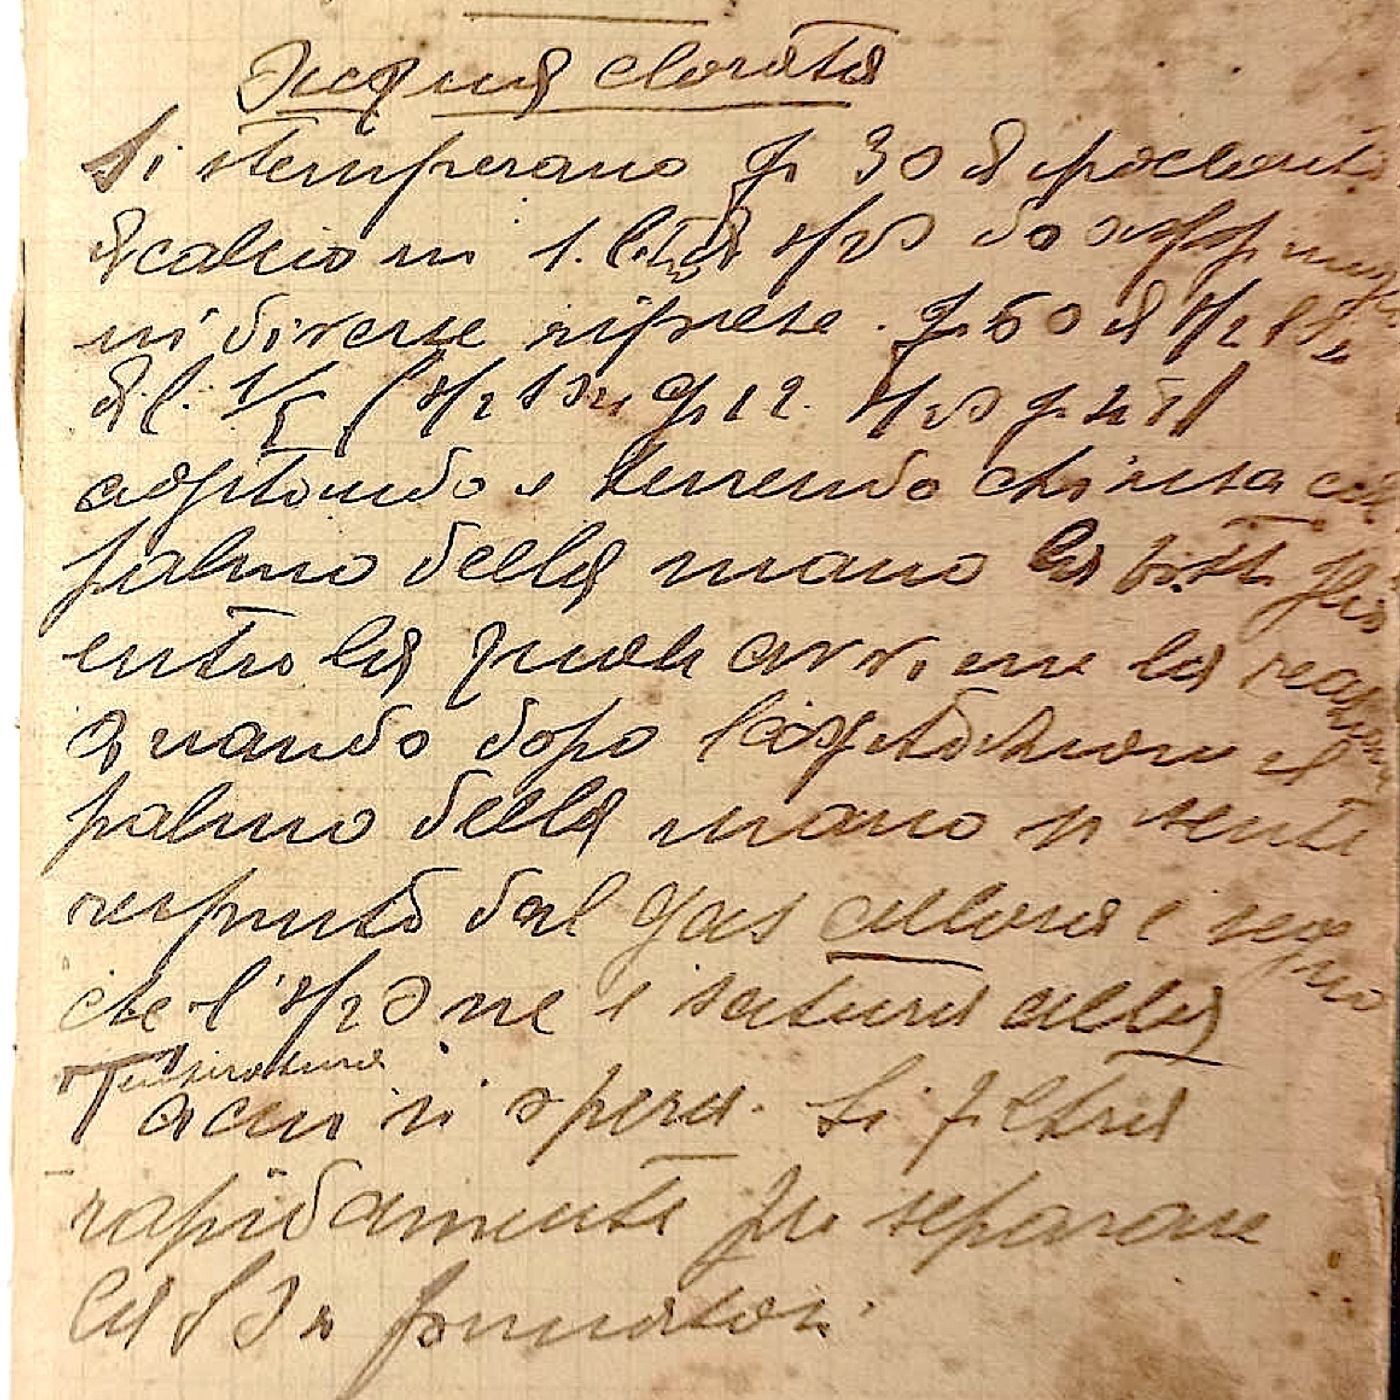 Acqua clorata
Si stemperano gr 30 d ipoclorito
di calcio in 1. litro H2O So aggiunge
in diverse riprese. gr. 60 di H2SO4
d. l. 1/5 (H2SO4 gr 12. H2O gr
agitando e tenendo chiusa col
palmo della mano la bottiglia
entro la quale avviene la reazione
Quando dopo l'agitazione il
palmo della mano si sente
respinto dal gas cloro è segno
che l'H2O ne è satura alla
Temperatura
a cui si opera. Si filtra
rapidamente per separare
la formatosi.